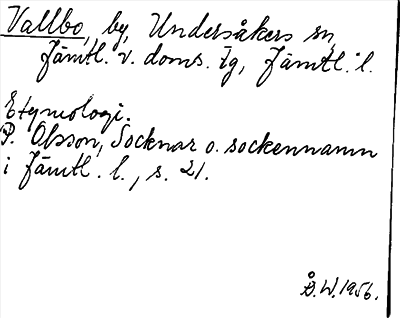 Vallbo, by, Undersåkers sn,
Jämtl. v. doms. tg, Jämtl. l.
Etymologi.
P. Olsson, Socknar o. sockennamn
i Jämtl. l., s. 21.
Å.W. 1956.